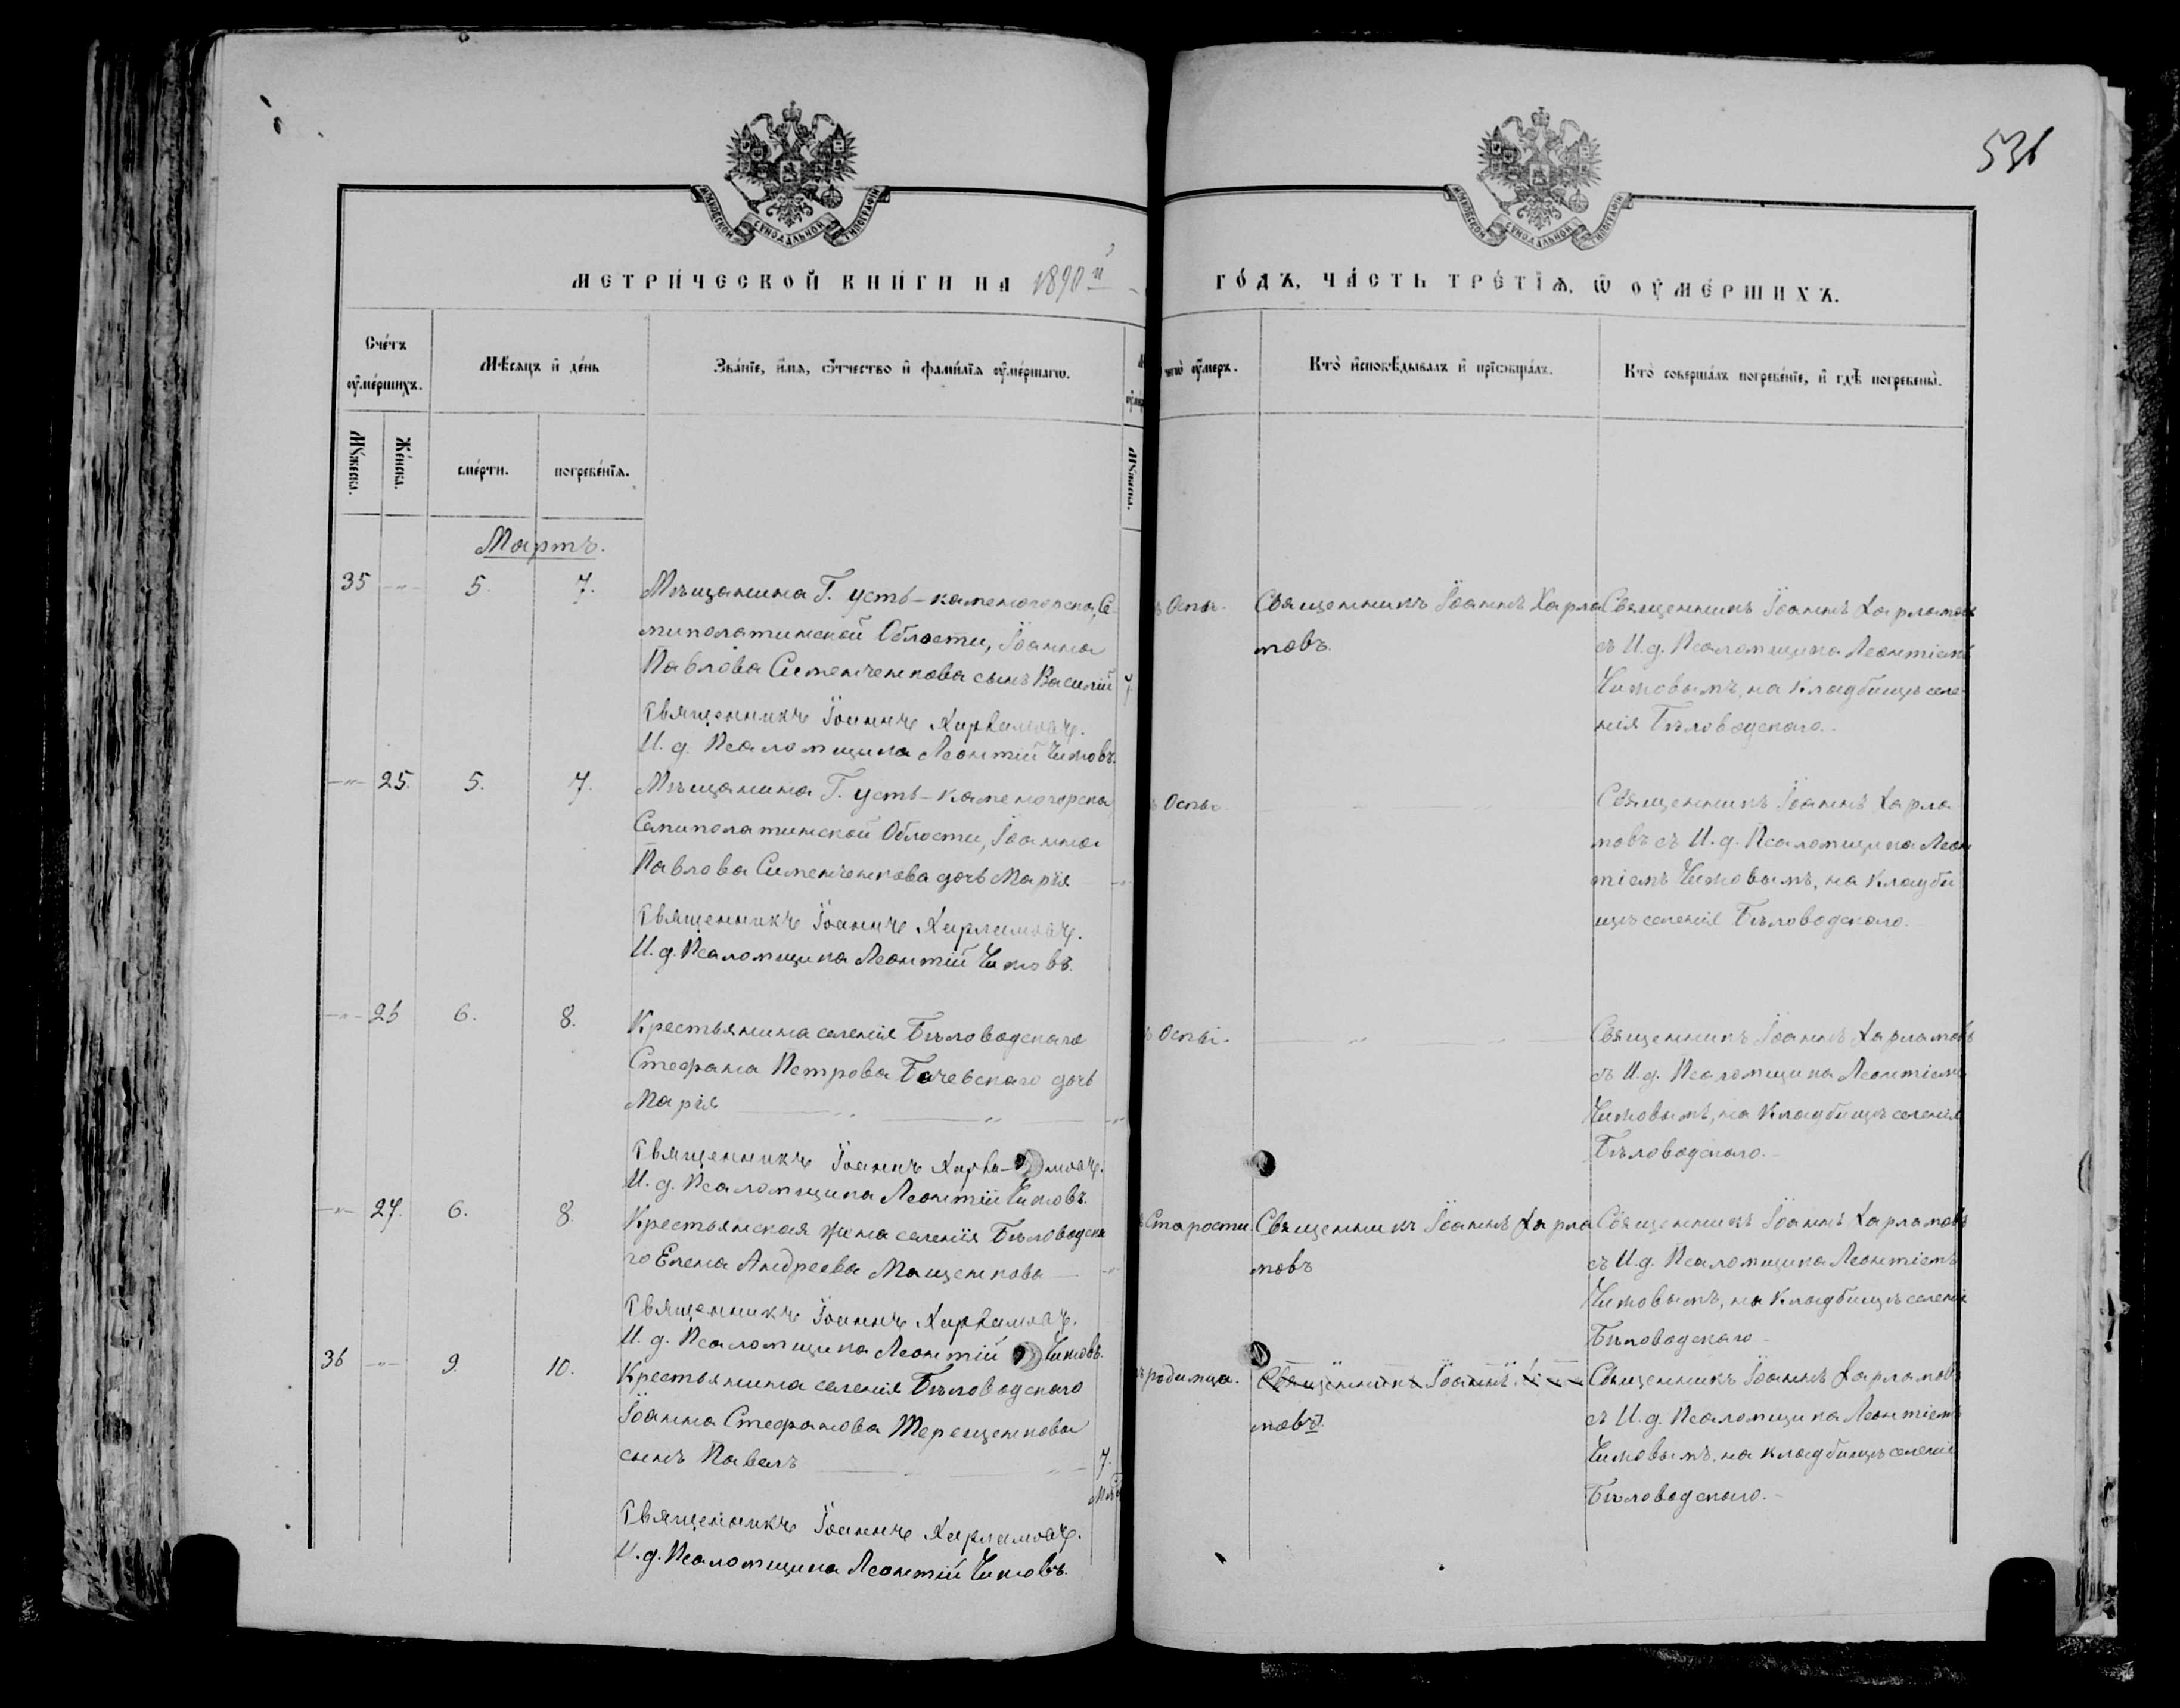 536
МОСКОВСКОЙ СѴНОДАЛЬНОЙ ТИПОГРАФІИ
МОСКОВСКОЙ СѴНОДАЛЬНОЙ ТИПОГРАФІИ
МЕТРИ́ЧЕСКОЙ КНИ́ГИ НА 1890й
ГО́ДЪ, ЧА́СТЬ ТРЕ́ТІѦ, Ѿ ОУ҆МЕ́РШИХЪ.
Сче́тъ оу҆ме́ршихъ.
Мѣ́сяцъ и҆ де́нь
Зва́нїе, и҆́мѧ, ѻ҆́тчество и҆ фами́лїѧ оу҆ме́ршагѡ.
чегѡ̀ оу҆́меръ.
Кто̀ и҆сповѣ́дывалъ и҆ прїѡбща́лъ.
Кто̀ соверша́лъ погребе́нїе, и҆ гдѣ̀ погребены̀.
Мꙋ́жеска.
Же́нска.
сме́рти.
погребе́нїѧ.
Мꙋ́жеска.
Мартъ.
35 -"- 5. 7.
Мѣщанина Г. усть-каменогорска, Се
миполатинской Области, Іоанна
Павлова Сименченкова сынъ Василій
Священникъ Іоаннъ Харламовъ.
И. д. Псаломщика Леонтій Чижовъ.
Оспы.
Священникъ Іоаннъ Харла
мовъ.
Священникъ Іоаннъ Харламовъ
съ И. д. Псаломщика Леонтіемъ
Чижовымъ, на кладбищѣ селе
нія Бѣловодскаго.
-"- 25. 5. 7.
Мѣщанина Г. усть-каменогорска
Семиполатинской Области, Іоанна
Павлова Сименченкова дочь Марія
Священникъ Іоаннъ Харламовъ.
И. д. Псаломщика Леонтій Чижовъ.
Оспы.
Священникъ Іоаннъ Харла
мовъ съ И. д. Псаломщика Леон
тіемъ Чижовымъ, на кладби
щѣ селенія Бѣловодскаго.
-"- 26 6. 8.
Крестьянина селенія Бѣловодскаго
Стефана Петрова Бачевскаго дочь
Марія
Священникъ Іоаннъ Харла-мовъ.
И. д. Псаломщика Леонтій Чижовъ.
Оспы.
Священникъ Іоаннъ Харламовъ
съ И. д. Псаломщика Леонтіемъ
Чижовымъ, на кладбищѣ селенія
Бѣловодскаго.
-"- 27. 6. 8.
Крестьянская жена селенія Бѣловодска
го Елена Андреева Мащенкова
Священникъ Іоаннъ Харламовъ.
И. д. Псаломщика Леонтій Чижовъ.
Старости
Священникъ Іоаннъ Харла
мовъ
Священникъ Іоаннъ Харламовъ
съ И. д. Псаломщика Леонтіемъ
Чижовымъ, на кладбищѣ селенія
Бѣловодскаго
36 -"- 9. 10.
Крестьянина селенія Бѣловодскаго
Іоанна Стефанова Терещенкова
сынъ Павелъ 7.
Священникъ Іоаннъ Харламовъ.
И. д. Псаломщика Леонтій Чижовъ.
родимца.
Священникъ Іоаннъ
мовъ.
Священникъ Іоаннъ Харламовъ
съ И. д. Псаломщика Леонтіемъ
Чижовымъ, на кладбищѣ селенія
Бѣловодскаго.